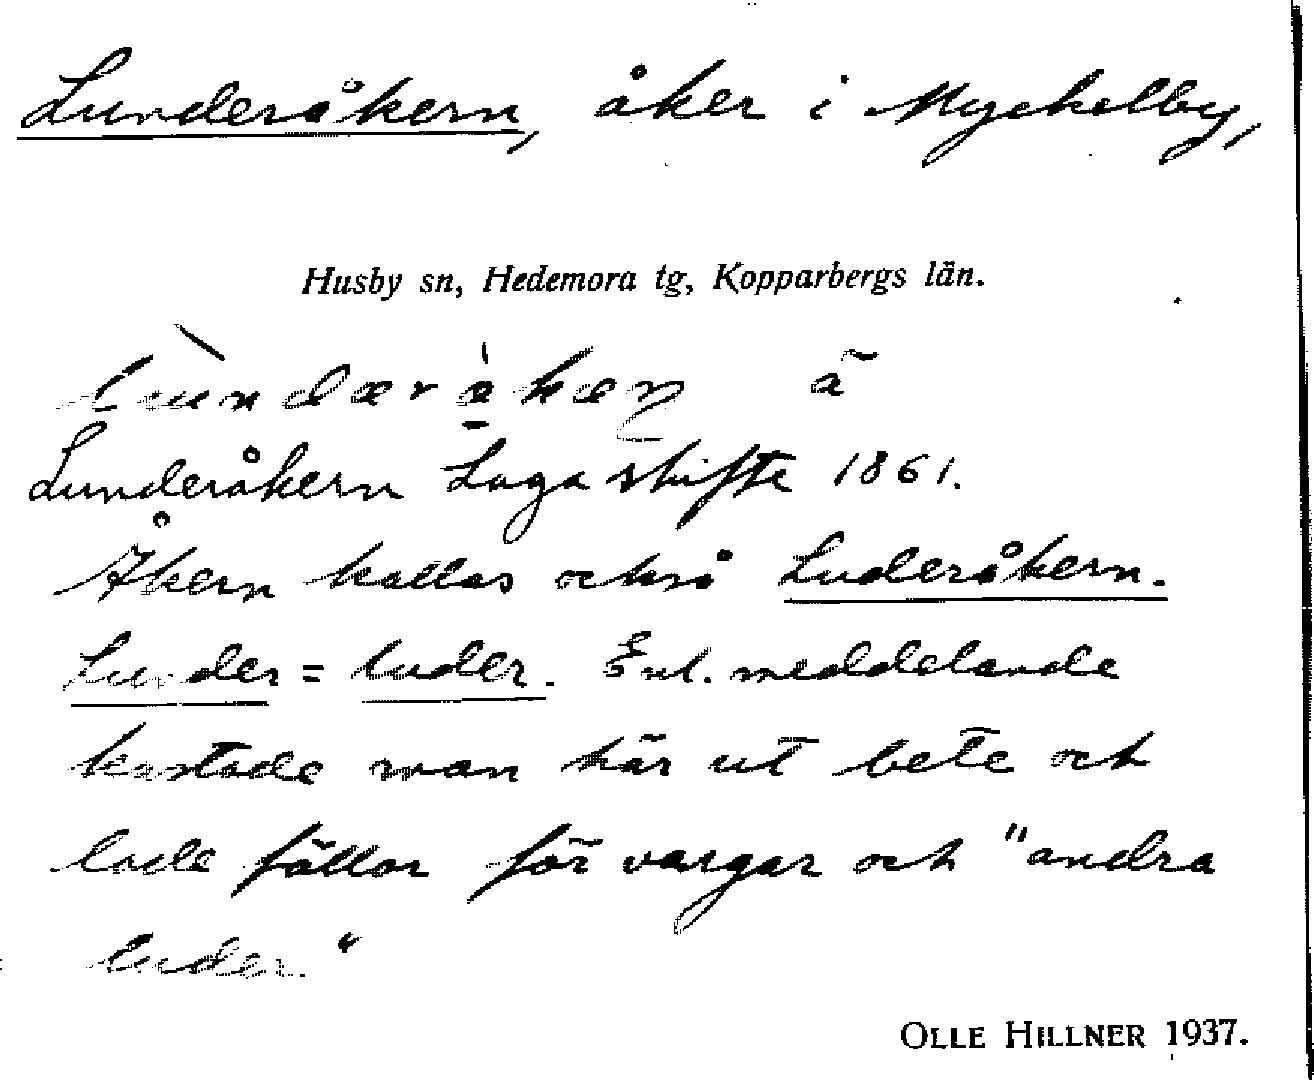 Lunderåkern, åker i Myckelby,
Husby sn, Hedemora tg, Kopparbergs län.
Lunderåkern Laga skifte 1861.
Åkern kallas också Luderåkern.
Lunder = luder. Enl. meddelande
kastade man här ut bete och
lade fällor för vargar och "andra
luder."
OLLE HILLNER 1937.